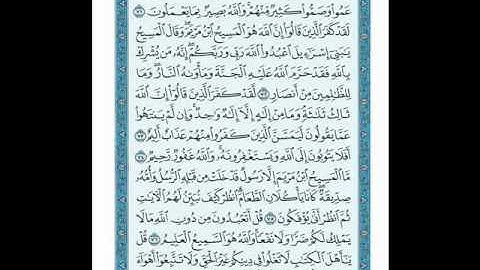 عَمُوا۟ وَصَمُّوا۟ كَثِيرٌ مِّنْهُمْ وَٱللَّهُ بَصِيرٌۢ بِمَا يَعْمَلُونَ ٧١
لَقَدْ كَفَرَ ٱلَّذِينَ قَالُوٓا۟ إِنَّ ٱللَّهَ هُوَ ٱلْمَسِيحُ ٱبْنُ مَرْيَمَ وَقَالَ ٱلْمَسِيحُ
يَٰبَنِىٓ إِسْرَٰٓءِيلَ ٱعْبُدُوا۟ ٱللَّهَ رَبِّى وَرَبَّكُمْ إِنَّهُۥ مَن يُشْرِكْ
بِٱللَّهِ فَقَدْ حَرَّمَ ٱللَّهُ عَلَيْهِ ٱلْجَنَّةَ وَمَأْوَىٰهُ ٱلنَّارُ وَمَا
لِلظَّٰلِمِينَ مِنْ أَنصَارٍ ٧٢ لَّقَدْ كَفَرَ ٱلَّذِينَ قَالُوٓا۟ إِنَّ ٱللَّهَ
ثَالِثُ ثَلَٰثَةٍ وَمَا مِنْ إِلَٰهٍ إِلَّآ إِلَٰهٌ وَٰحِدٌ وَإِن لَّمْ يَنتَهُوا۟
عَمَّا يَقُولُونَ لَيَمَسَّنَّ ٱلَّذِينَ كَفَرُوا۟ مِنْهُمْ عَذَابٌ أَلِيمٌ ٧٣
أَفَلَا يَتُوبُونَ إِلَى ٱللَّهِ وَيَسْتَغْفِرُونَهُۥ وَٱللَّهُ غَفُورٌ رَّحِيمٌ ٧٤
مَّا ٱلْمَسِيحُ ٱبْنُ مَرْيَمَ إِلَّا رَسُولٌ قَدْ خَلَتْ مِن قَبْلِهِ ٱلرُّسُلُ وَأُمُّهُۥ
صِدِّيقَةٌ كَانَا يَأْكُلَانِ ٱلطَّعَامَ ٱنظُرْ كَيْفَ نُبَيِّنُ لَهُمُ ٱلْءَايَٰتِ
ثُمَّ ٱنظُرْ أَنَّىٰ يُؤْفَكُونَ ٧٥ قُلْ أَتَعْبُدُونَ مِن دُونِ ٱللَّهِ مَا لَا
يَمْلِكُ لَكُمْ ضَرًّا وَلَا نَفْعًا وَٱللَّهُ هُوَ ٱلسَّمِيعُ ٱلْعَلِيمُ ٧٦ قُلْ
يَٰٓأَهْلَ ٱلْكِتَٰبِ لَا تَغْلُوا۟ فِى دِينِكُمْ غَيْرَ ٱلْحَقِّ وَلَا تَتَّبِعُوٓا۟ أَهْوَآءَ